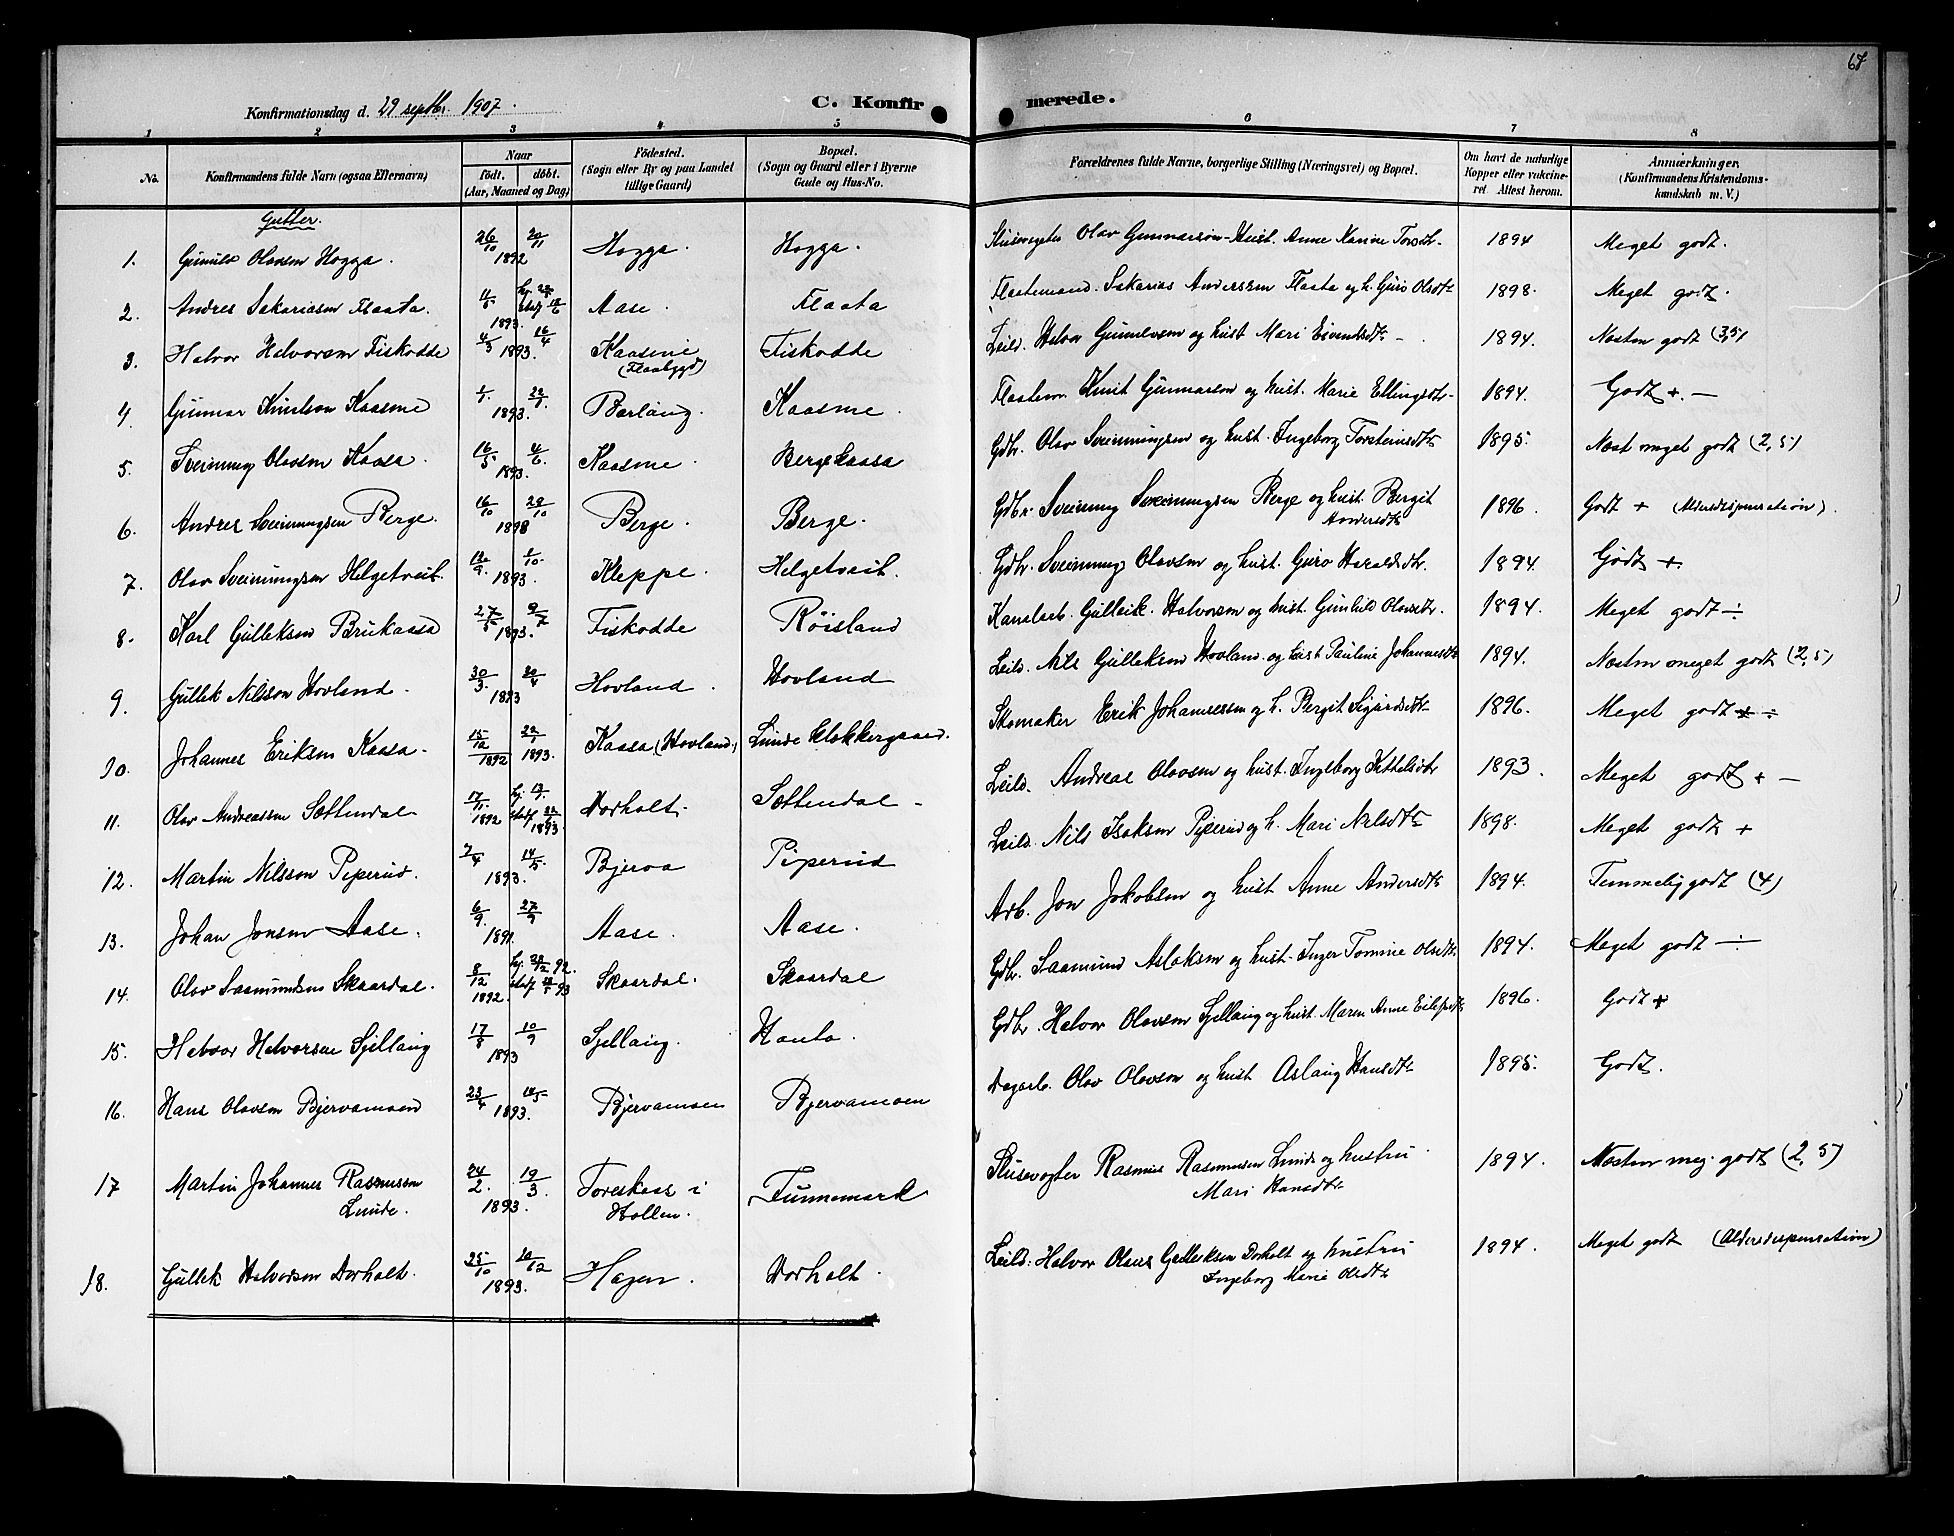 67
Konfirmationsdag d. 29 septbr. 1907.
C. Konfirmerede.
1 2 3 4 5 6 7 8
No. Konfirmandens fulde Navn (ogsaa Efternavn) Naar født. døbt. (Aar, Maaned og Dag) Fødested. (Sogn eller By og paa Landet tillige Gaard) Bopæl. (Sogn og Gaard eller i Byerne Gade og Hus-No. Forældrenes fulde Navne, borgerlige Stilling (Næringsvei) og Bopæl. Om havt de naturlige Kopper eller vakcineret Attest herom. Anmærkninger. (Konfirmandens Kristendomskundskab m. V.)
Gutter.
1. Gunulv Olavsen Hogga. 26/10 1892 20/11 Hogga. Hogga. Slusevogter Olav Gunnarsen Hust. Anne Karine Torsdtr. 1894 Meget godt.
2. Andres Sakariasen Flaata. 11/5 1893. Aase. Flaata Flaatemand. Sakarias Anderssen Flaata og h. Guro Olsdtr 1898. Meget godt.
3. Halvor Halvorsen Fiskodde 4/3 1893. 16/4 Kaasene (Flaabygd) Fiskodde Leil. Halvor Gunulvsen og hust Mari Eivindsdtr 1894. Næsten godt (3,5)
4. Gunnar Knutson Kaasene 1/1 1893. 22/1 Barlaug. Kaasene. Knut Gunnarsen og hust. Marie Ellingsdtr 1894. Godt +. —
5. Sveinung Olavsen Kaasa. 16/5 1893. 4/6 Kaasene. Berge kaasa Gdbr. Olav Sveinungsen og hust. Ingeborg Torsteinsdtr 1895. Næst meget godt (2,5)
6. Andres Sveinungsen Berge. 16/10 1898 29/10 Berge. Berge. Gdbr. Sveinung Sveinungsen Berge og hust. Bergit Andersdtr 1896. Godt + (Aldersdispensation).
7. Olav Sveinungsen Helgetveit. 12/9. 1893. 1/10. Kleppe. Helgetveit. Gdbr. Sveinung Olavsen og hust. Guro Haraldsdtr. 1894. Godt +.
8. Karl Gulleksen Brukaasa 27/5 1893. 9/7 Fiskodde Røisland Kanalarb. Gulleik Halvorsen og hust. Gunhild Olavsdtr. 1894. Meget godt ÷
9. Gullek Nilsson Hovland. 30/3. 1893 30/4 Hovland. Hovland Leil. Nils Gulleksen Hovland og hust Pauline Johannesdtr 1894. Næsten meget godt (2,5)
10. Johannes Eriksen Kaasa. 15/12 1892 22/1 1893. Kaasa (Hovland) Lunde klokkergaard. Skomaker Erik Johannessen og h. Bergit Sigurdsdtr 1896. Meget godt + ÷
11. Olav Andreassen Sættendal 17/11. 1892 1893. Dorholt. Sættendal Leil. Andreas Olavsen og hust. Ingeborg Kittelsdtr 1893. Meget godt + —
12. Martin Nilsson Piperud. 7/4 1893. 14/5. Bjerva Piperud Leil. Nils Isaksen Piperud og h. Mari Nilsdtr 1898. Meget godt +
13. Johan Jonsen Aase. 6/9. 1891. 27/9 Aase. Aase. Arb. Jon Jakobsen og hust Anne Andersdtr 1894. Temmelig godt (4)
14. Olav Saamundsen Skaardal. 8/12 1892. Skaardal. Skaardal Gdbr. Saamund Aslaksen og hust. Inger Tomine Olsdtr 1894. Meget godt ÷
15. Halvor Halvorsen Sjellaug 17/8 1893 10/9 Sjellaug. Hanto. Gdbr. Halvor Olavsen Sjellaug og hust. Maren Anne Eilefsdtr 1896. Godt +
16. Hans Olavsen Bjervamoen 23/4 1893. 14/5 Bjervamoen Bjervamoen Dagarb. Olav Olavson og hust Aslaug Hansdtr 1895. Godt.
17 Martin Johannes Rasmussen Lunde. 24/2. 1893. 19/3. Foreskaas i Hollen. Funnemark Slusevogter Rasmus Rasmussen Lunde og hustru Mari Hansdtr 1894. Næsten meg. godt (2,5)
18. Gullek Halvorsen Dorholt. 25/10 1893. 10/12 Hagen. Dorholt. Leil. Halvor Olaus Gulleksen Dorholt og hustru Ingeborg Marie Olsdtr 1894. Meget godt (Aldersdispensation)